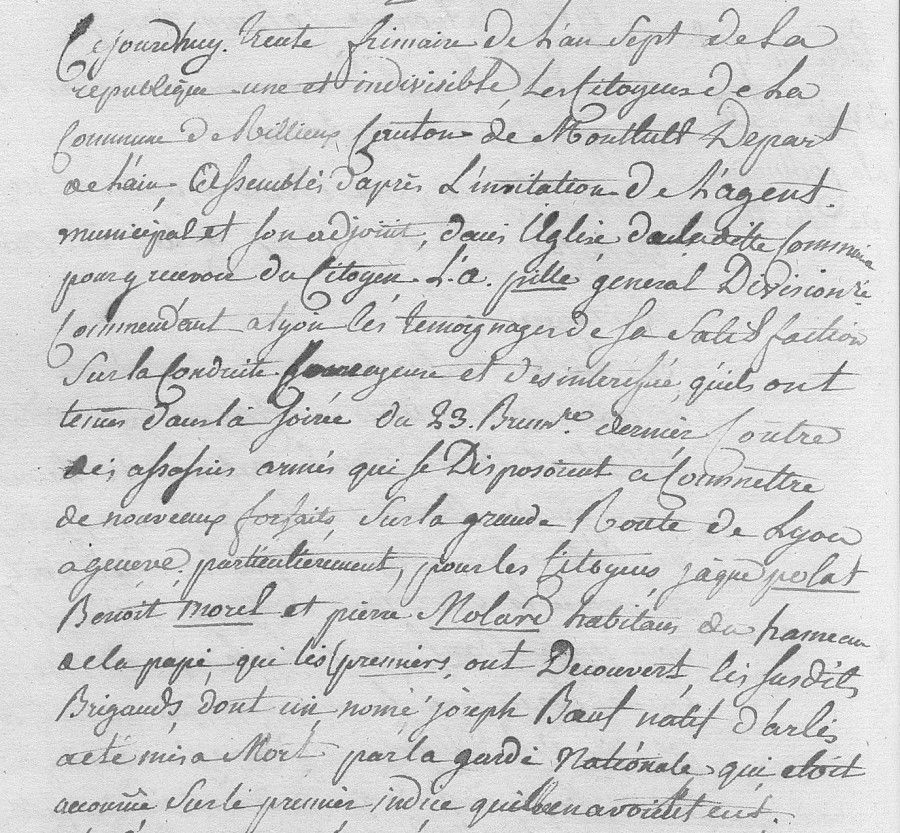 Cejourdhuy. trente frimaire de L'an Sept de La
republique une et indivisible, Les Citoyens de La
Commune de Rillieux Canton de Montluel Depart
de L'ain Assemblés d'après L'invitation de L'agent
municipal et son adjoint, dans L'Eglise de laditte Commune
pour y recevoir du Citoyen L.a. pille général Divisionre
Commendant a Lyon les temoignages de sa satisfaction
Sur la Conduite Courageuse et desinteressée, quils ont
tenus dans la soirée du 23. Brumre. dernier Contre
des assasins armés qui se Disposoient a Commettre
de nouveaux forfaits sur la grande Route de Lyon
a geneve, particulièrement, pour les Citoyens jâque polat
Benoit Morel et pierre Molard habitans du hameau
de la pape, qui les premiers, ont Decouvert, les susdits
Brigands, dont un, nomé joseph Bœuf natif d'arles
a eté mis a Mort par la garde Nationale, qui etoit
accourue Sur le premier indice quils en avoient eut.